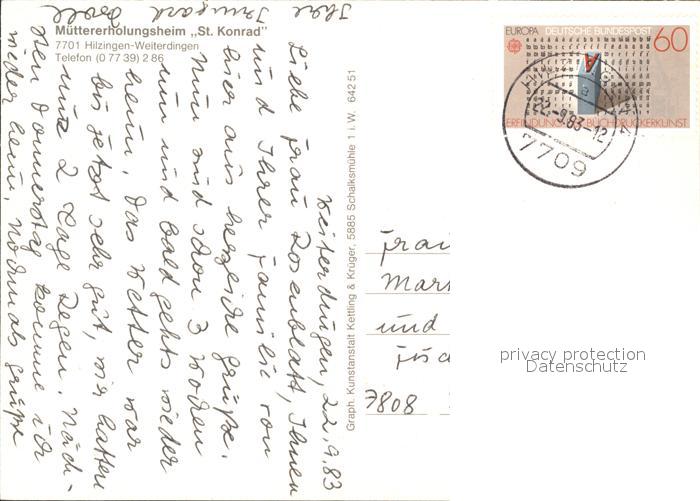 Müttererholungsheim „St. Konrad"
7701 Hilzingen-Weiterdingen
Telefon (0 77 39) 2 86
Weiterdingen, 22.9.83
Liebe Frau Rosenblatt, Ihnen
und Ihrer Familie von
hier aus herzliche Grüße.
Nun sind schon 3 Wochen
um und bald gehts wieder
heim. Das Wetter war
bis jetzt sehr gut, wir hatten
nur 2 Tage Regen. Näch-
sten Donnerstag komme ich
wieder heim. Nochmals Grüße
Ihre Irmgard
Graph. Kunstanstalt Kettling & Krüger, 5885 Schalksmühle 1 i.W. 642 51
EUROPA DEUTSCHE BUNDESPOST
60
ERFINDUNG BUCHDRUCKERKUNST
22.-9.83-12
7709
Frau
Mar
und
7808
privacy protection
Datenschutz